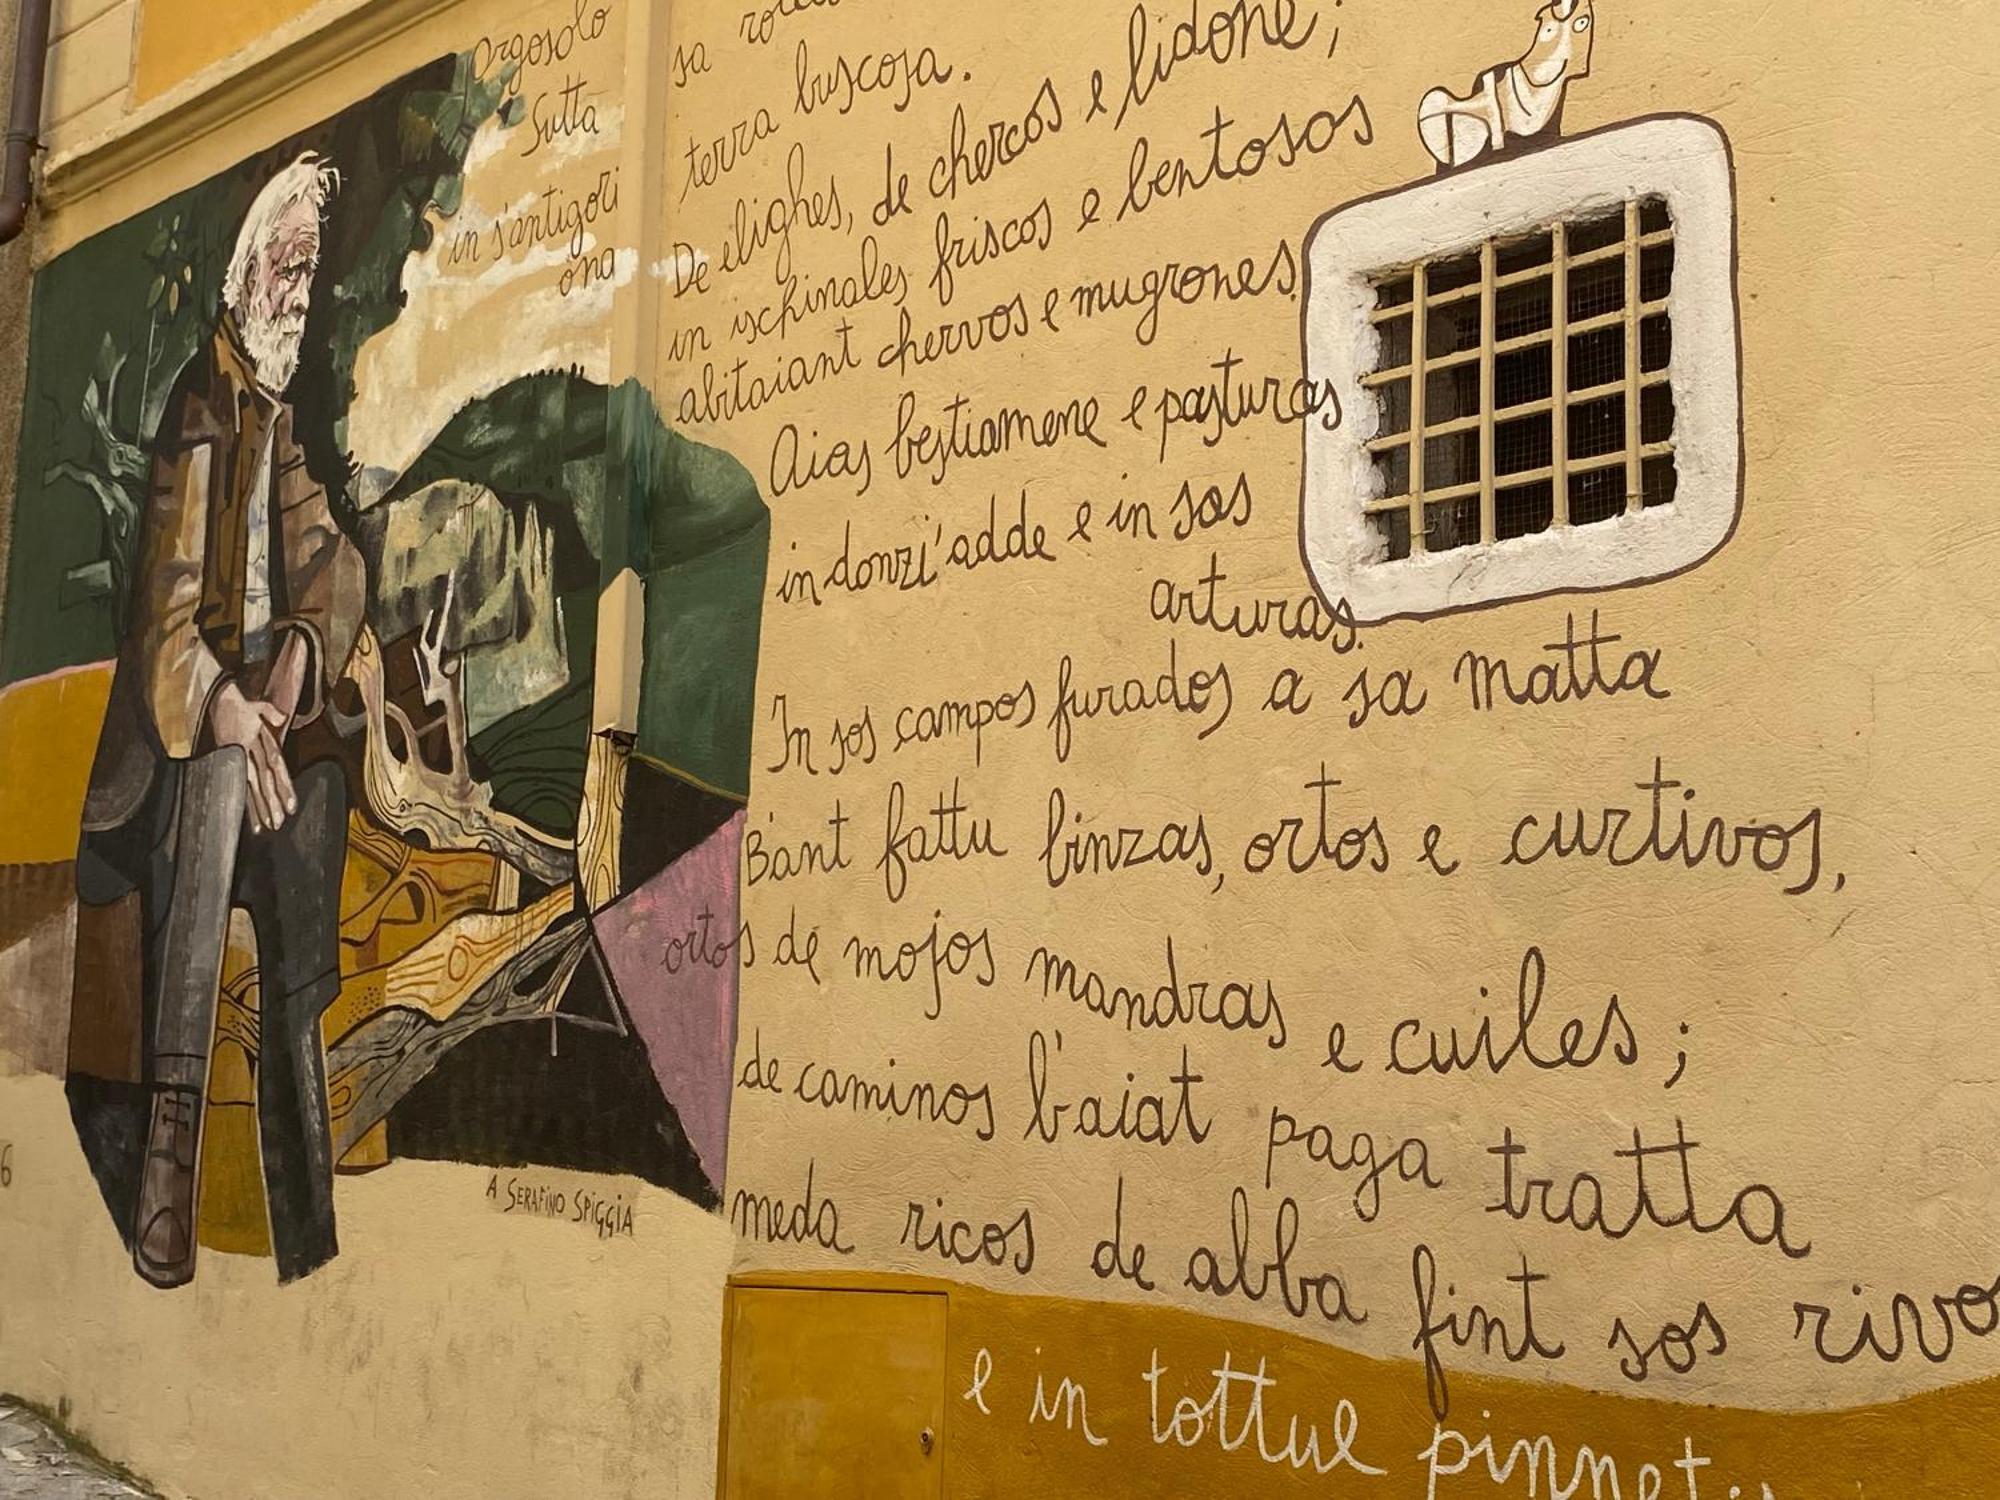 Orgosolo
Sutta
in s'antigori
ona
sa
terra buscosa.
De elighes, de chercos e lidone;
in ischinales friscos e bentosos
abitaiant chervos e mugrones.
Aias bestiamene e pasturas
in donzi'adde e in sas
arturas.
In sos campos furados a sa matta
B'ant fattu binzas, ortos e curtivos,
ortos de mojos mandras e cuiles;
de caminos b'aiat paga tratta
meda ricos de abba fint sos rivo
e in tottue pinnet
A SERAFINO SPIGGIA
6